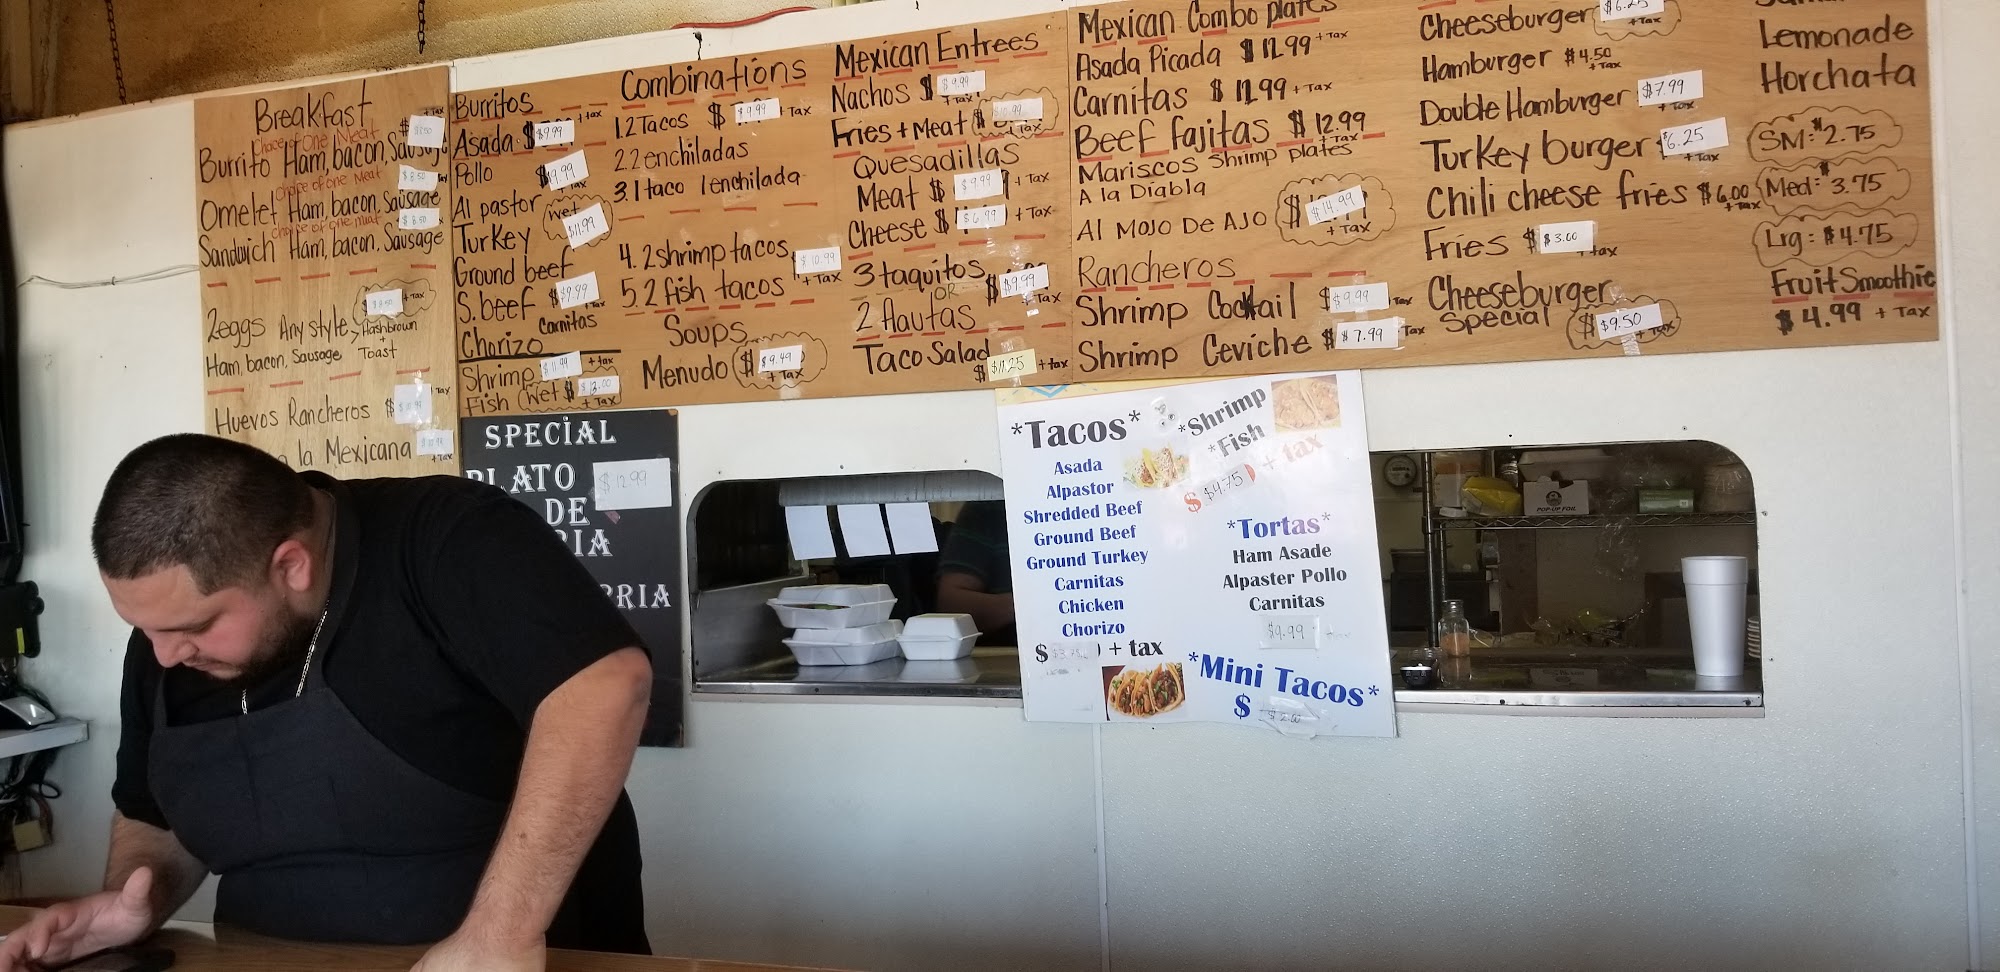 Breakfast
+ Tax
Choice of One Meat
Burrito Ham, bacon, Sausage
$ 8.50
Choice of one Meat
Omelet Ham, bacon, Sausage
$ 8.50
choice of one meat
Sandwich Ham, bacon, Sausage
$ 8.50
+ Tax
2eggs Any style, Hashbrown
+
Ham, bacon, Sausage Toast
Huevos Rancheros $
+ Tax
la Mexicana
+ Tax
Burritos
Asada $ $9.99 + tax
Pollo $9.99
+ Tax
Al pastor Wet
Turkey $11.99
Ground beef
S. beef $ $9.99
+ Tax
Carnitas
Chorizo
Shrimp $11.99 + tax
Fish Wet $ $13.00
+ Tax
Combinations
1. 2 Tacos $ $9.99 + Tax
2. 2 enchiladas
3. 1 taco 1 enchilada
4. 2 shrimp tacos $10.99
5. 2 fish tacos + Tax
Soups
Menudo $ $9.49
+ Tax
Mexican Entrees
Nachos $ $9.99
+ Tax
Fries + Meat $ $10.99
+ Tax
Quesadillas
Meat $ $9.99 + Tax
Cheese $ $6.99 + Tax
3 taquitos
OR $ $9.99
+ Tax
2 flautas
Taco Salad
$ $11.25 + tax
Mexican Combo plates
Asada Picada $ 12.99 + Tax
Carnitas $ 12.99 + Tax
Beef fajitas $ 12.99
+ Tax
Mariscos Shrimp plates
A la Diabla
Al Mojo De AJO $ $14.99
+ Tax
Rancheros
Shrimp Cocktail $ $9.99 + Tax
Shrimp Ceviche $ $7.99 + Tax
Cheeseburger $6.25
+ Tax
Hamburger $4.50
+ Tax
Double Hamburger $7.99
+ Tax
Turkey burger $6.25
+ Tax
Chili cheese fries $6.00
+ Tax
Fries $ $3.00
+ tax
Cheeseburger
Special $ $9.50
+ Tax
Lemonade
Horchata
SM: $2.75
Med: $3.75
Lrg: $4.75
Fruit Smoothie
$ 4.99 + Tax
SPECIAL
PLATO $12.99
DE
RIA
PRIA
*Tacos*
Asada
Alpastor
Shredded Beef
Ground Beef
Ground Turkey
Carnitas
Chicken
Chorizo
$ $3.75 + tax
*Shrimp
*Fish
$ $4.75 + tax
*Tortas*
Ham Asade
Alpaster Pollo
Carnitas
$9.99
*Mini Tacos*
$ $2.00
POP-UP FOIL